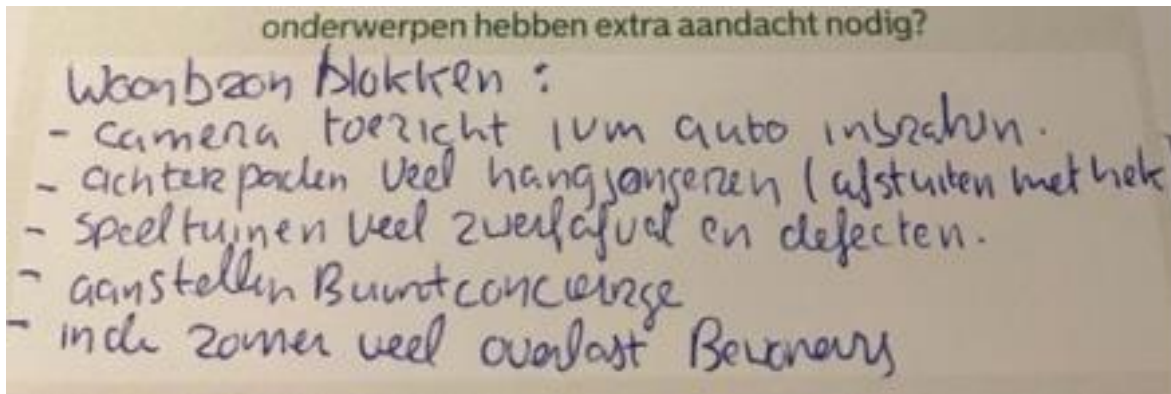 onderwerpen hebben extra aandacht nodig?
Woonbron blokken :
- camera toezicht ivm auto inbraken.
- achterpaden veel hangjongeren (afsluiten met hek
- speeltuinen veel zwerfafval en defecten.
- aanstellen Buurtconcierge
- in de zomer veel overlast Bewoners